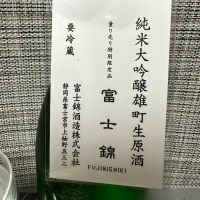 純米大吟醸雄町生原酒
量り売り特別限定品
富士錦
FUJINISHIKI
要冷蔵
富士錦酒造株式会社
静岡県富士宮市上柚野五三二